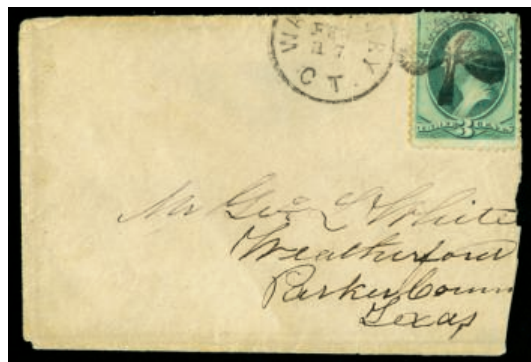 WA RY
CT.
THREE 3 CENTS
Mr Geo. L White
Weatherford
Parker Coun
Texas